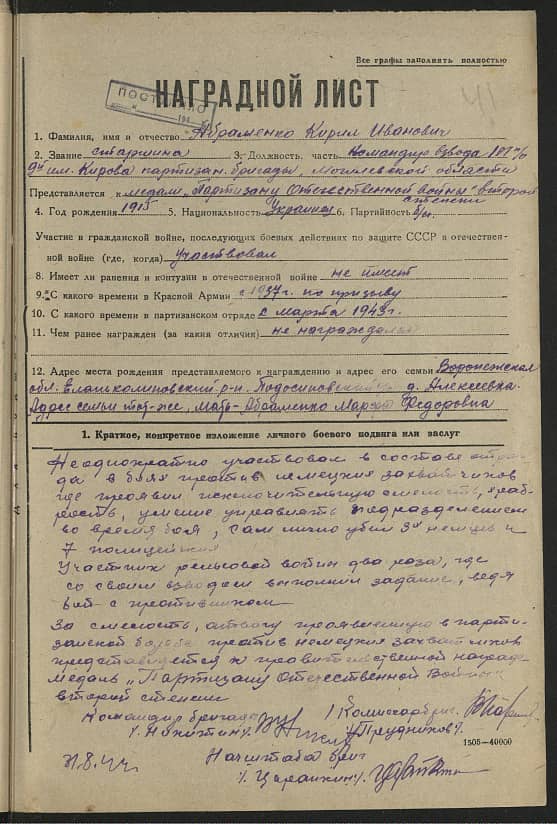 Все графы заполнять полностью
41
НАГРАДНОЙ ЛИСТ
1. Фамилия, имя и отчество Абраменко Кирил Иванович
2. Звание старшина 3. Должность, часть командир взвода
им. Кирова партизан. бригады, Могилевской области
Представляется к медали „Партизану Отечественной войны" второй
степени
4. Год рождения 1915 5. Национальность Украинец 6. Партийность б/п
Участие в гражданской войне, последующих боевых действиях по защите СССР в отечествен-
ной войне (где, когда) участвовал
8. Имеет ли ранения и контузии в отечественной войне не имеет
9. С какого времени в Красной Армии с 1937 г. по призыву
10. С какого времени в партизанском отряде с марта 1943 г.
11. Чем ранее награжден (за какия отличия) не награждался
12. Адрес места рождения представляемого к награждению и адрес его семьи Воронежская
обл. р-н. Подосиновский д. Алексеевка.
Адрес семьи тот-же, мать-Абраменко Федоровна
1. Краткое, конкретное изложение личного боевого подвига или заслуг
Неоднократно участвовал в составе отря-
да в боях против немецких захватчиков
где проявил исключительную смелость, храб-
рость, умение управлять подразделением
во время боя, сам лично убил 3х немцев и
7 полицейских
Участник рельсовой войны два раза, где
со своим взводом выполнил задание, ведя
бой с противником
За смелость, отвагу проявленную в парти-
занской борьбе против немецких захватчиков
представляется к правительственной награде
медаль „Партизану Отечественной Войны"
второй степени
Командир бригады Комиссар бриг.
/Никитин/ /Прудников/
1505—40000
Начштаба бриг
/Царанкин/